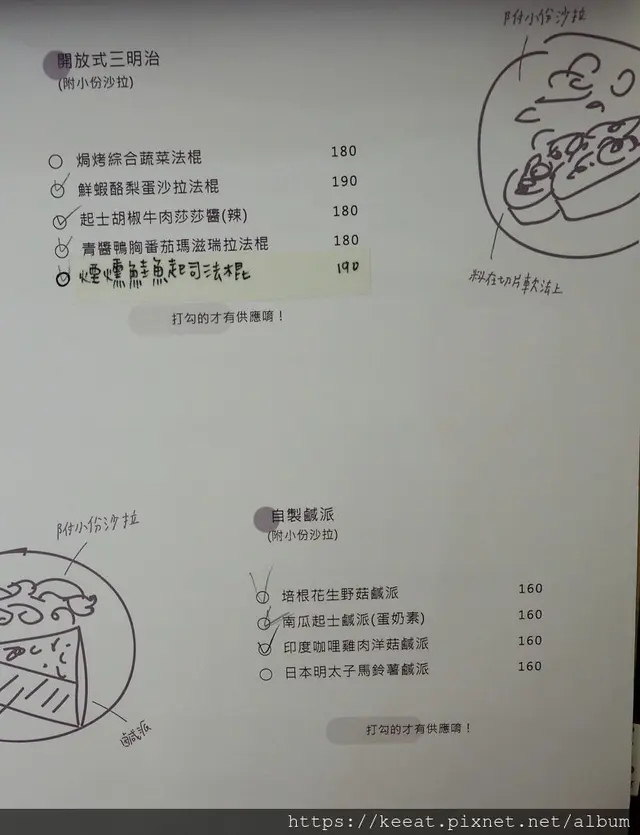 附小份沙拉
開放式三明治
(附小份沙拉)
焗烤綜合蔬菜法棍 180
鮮蝦酪梨蛋沙拉法棍 190
起士胡椒牛肉莎莎醬(辣) 180
青醬鴨胸番茄瑪滋瑞拉法棍 180
煙燻鮭魚起司法棍 190
料在切片軟法上
打勾的才有供應唷!
附小份沙拉
自製鹹派
(附小份沙拉)
培根花生野菇鹹派 160
南瓜起士鹹派(蛋奶素) 160
印度咖哩雞肉洋菇鹹派 160
日本明太子馬鈴薯鹹派 160
鹹派
打勾的才有供應唷!
https://keeat.pixnet.net/album